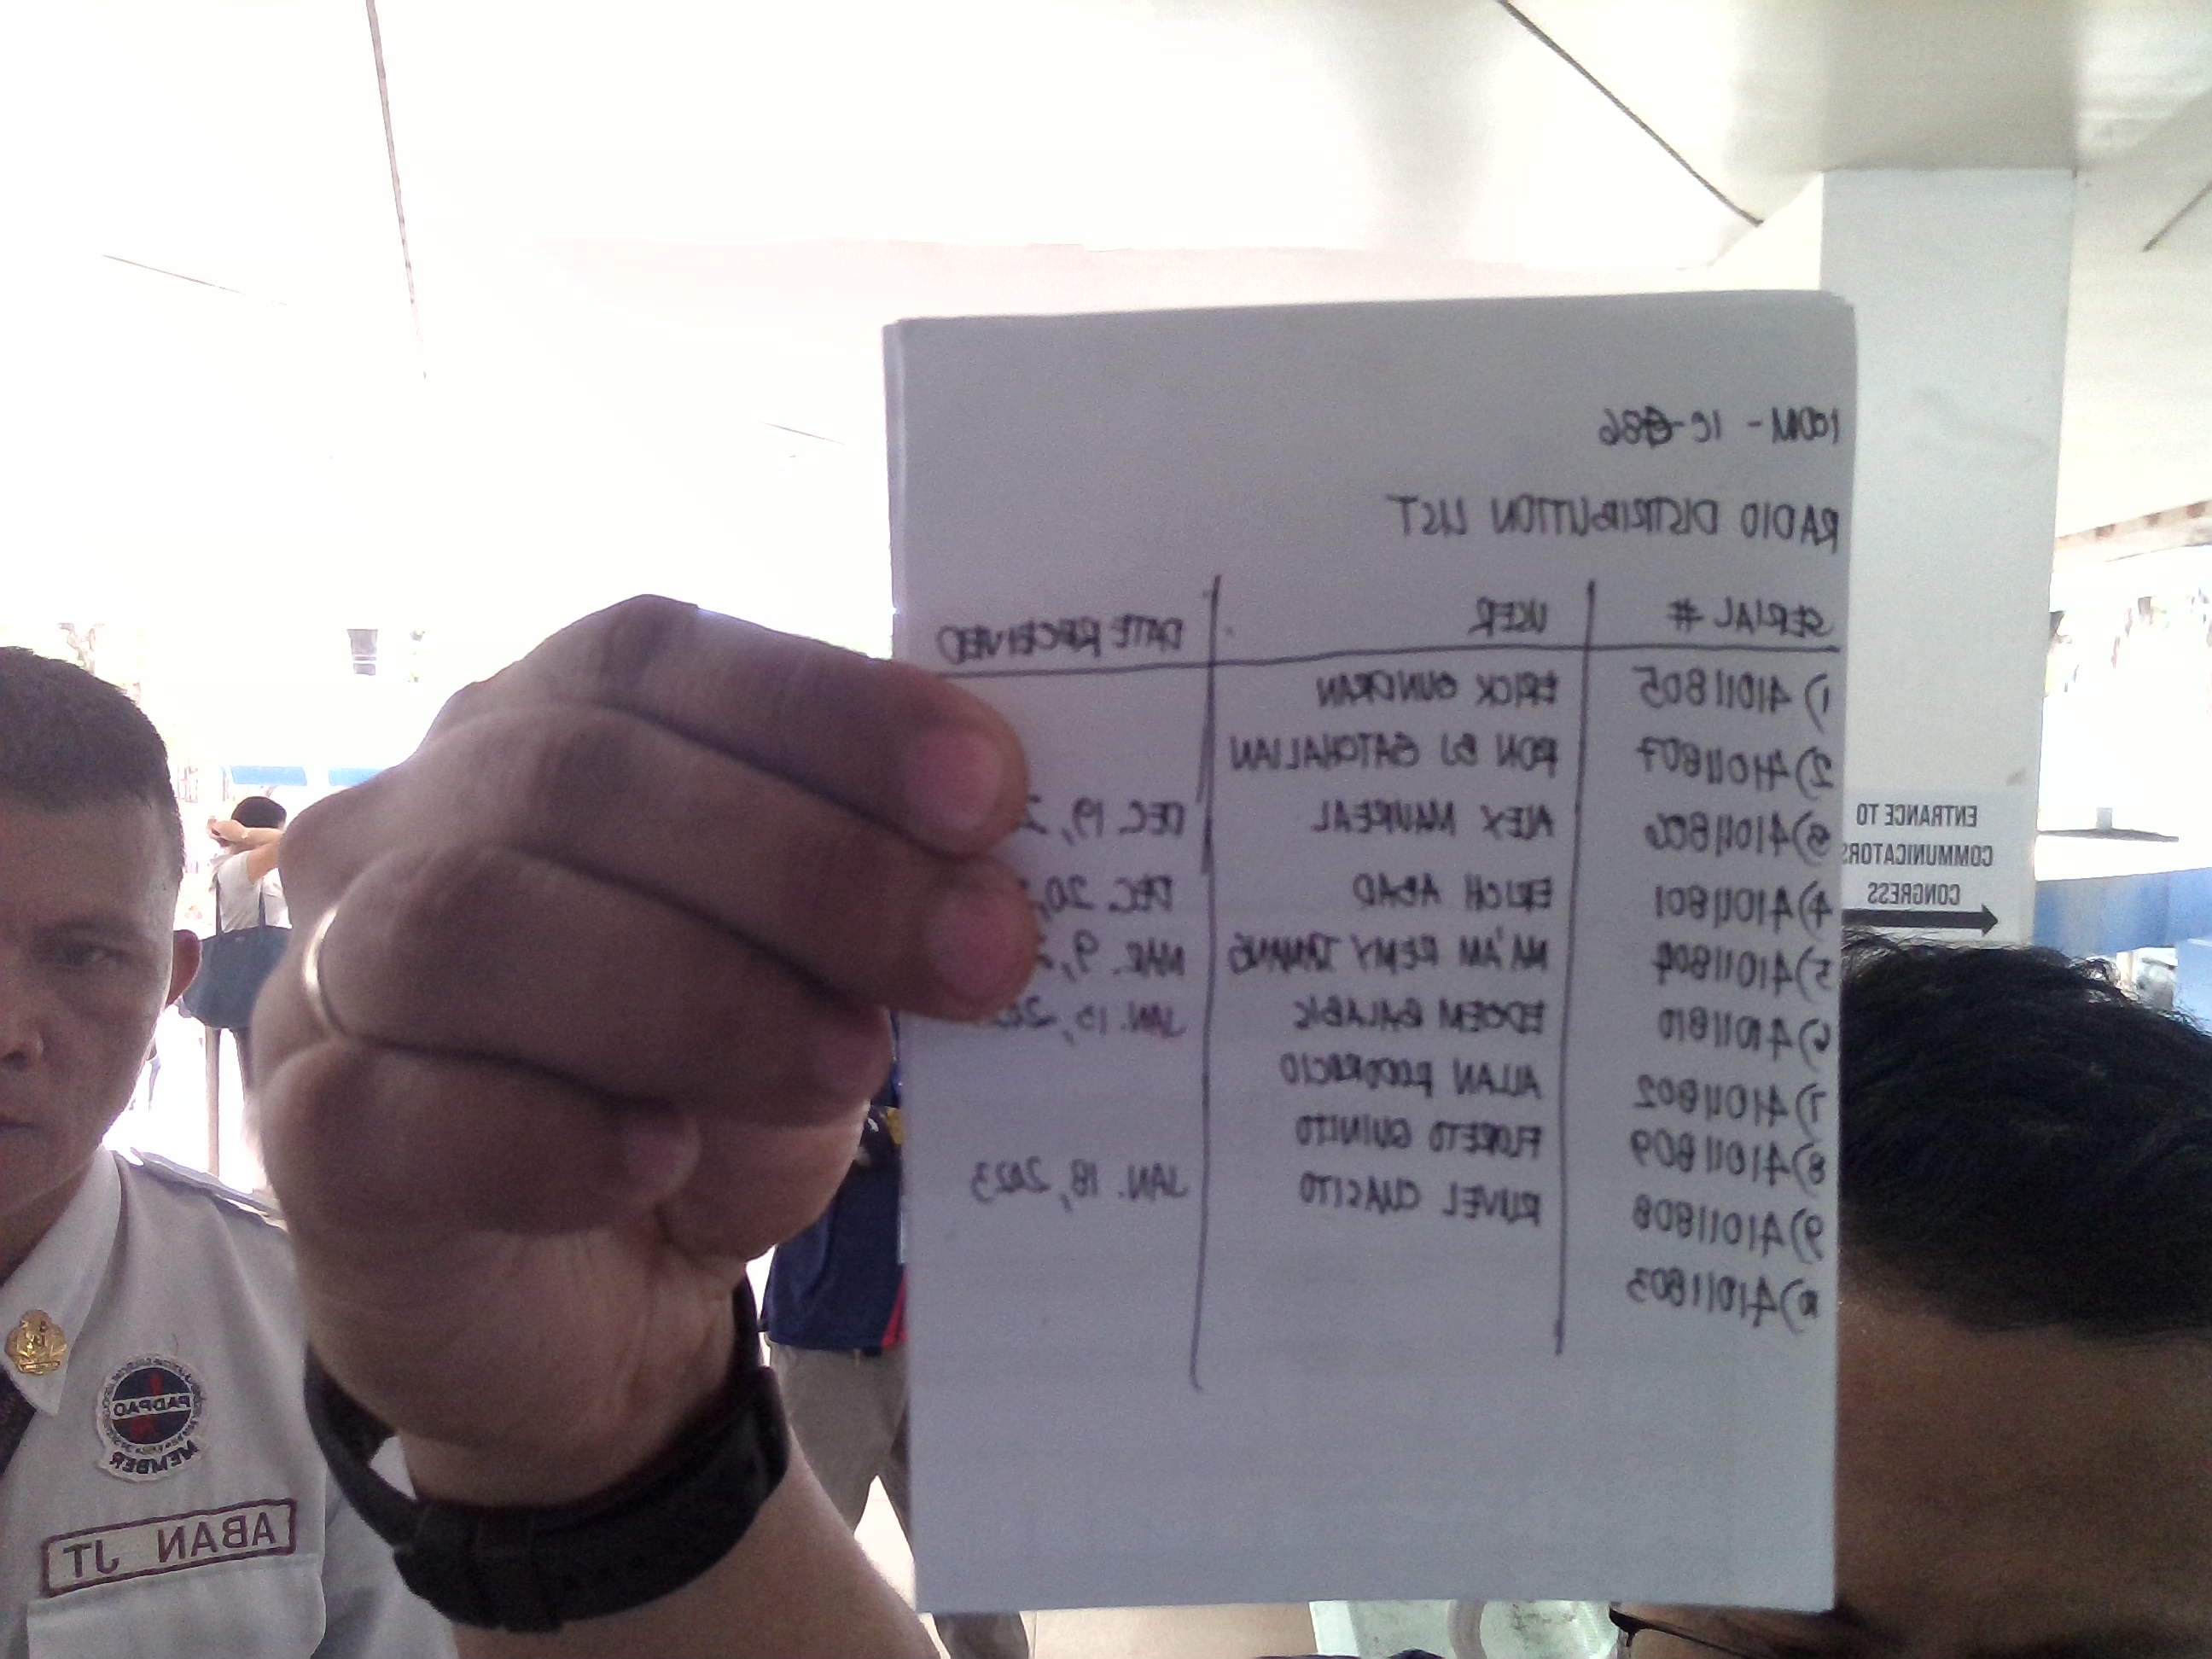 ICOM - IC-G86
RADIO DISTRIBUTION LIST
SERIAL # USER DATE RECEIVED
1) 41011805 ERICK GUNGRAN
2) 41011807 RON BJ GATCHALIAN
3) 41011806 ALEX MANREAL DEC 19, 2
4) 41011801 ERICH ABAD DEC. 20,
5) 41011804 MA'AM REMY TAMANG MAR. 9, 2
6) 41011810 EDGEM GALABIC JAN. 13, 202
7) 41011802 ALLAN RODORACIO
8) 41011809 FLORETO GUINITO
9) 41011808 RUVEL CUASITO JAN. 18, 2023
10) 41011803
ENTRANCE TO
COMMUNICATORS
CONGRESS
PADPAO
MEMBER
ABAN JT